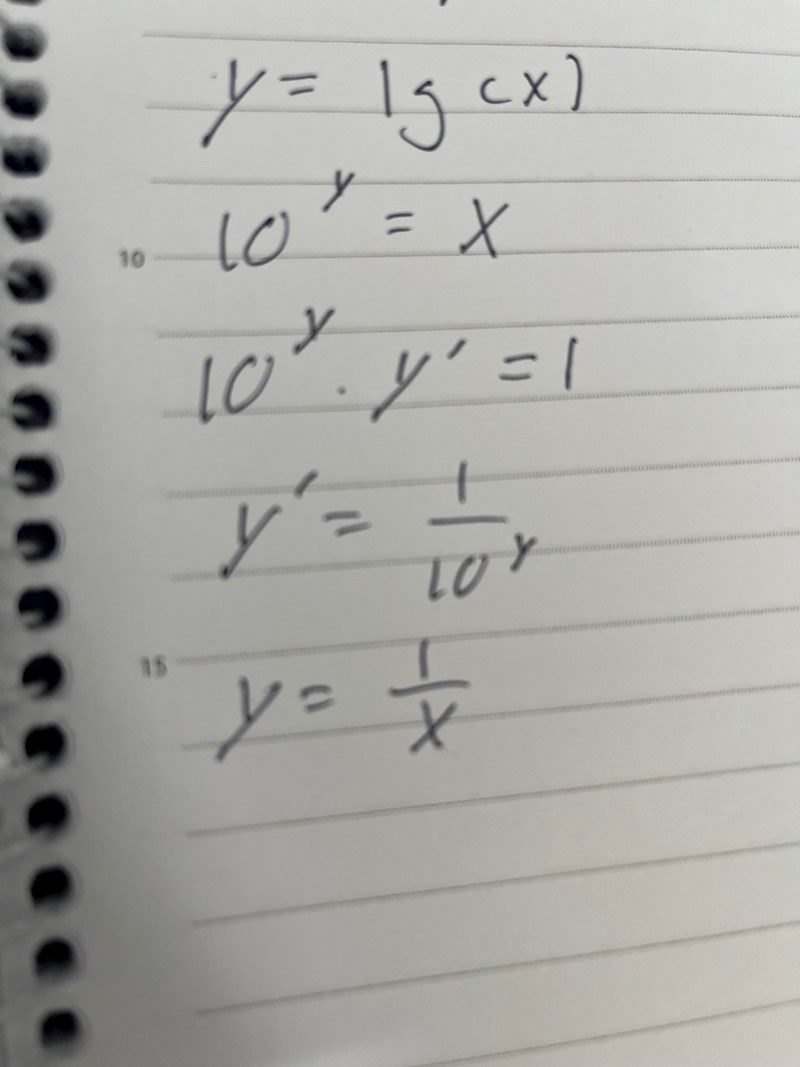 y = lg(x)
10^y = x
10
10^y · y' = 1
y' = 1/10^y
15
y = 1/x